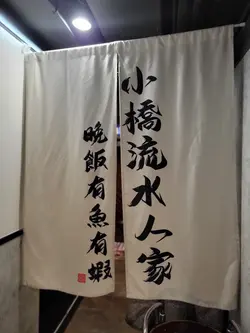 小橋流水人家
晚飯有魚有蝦